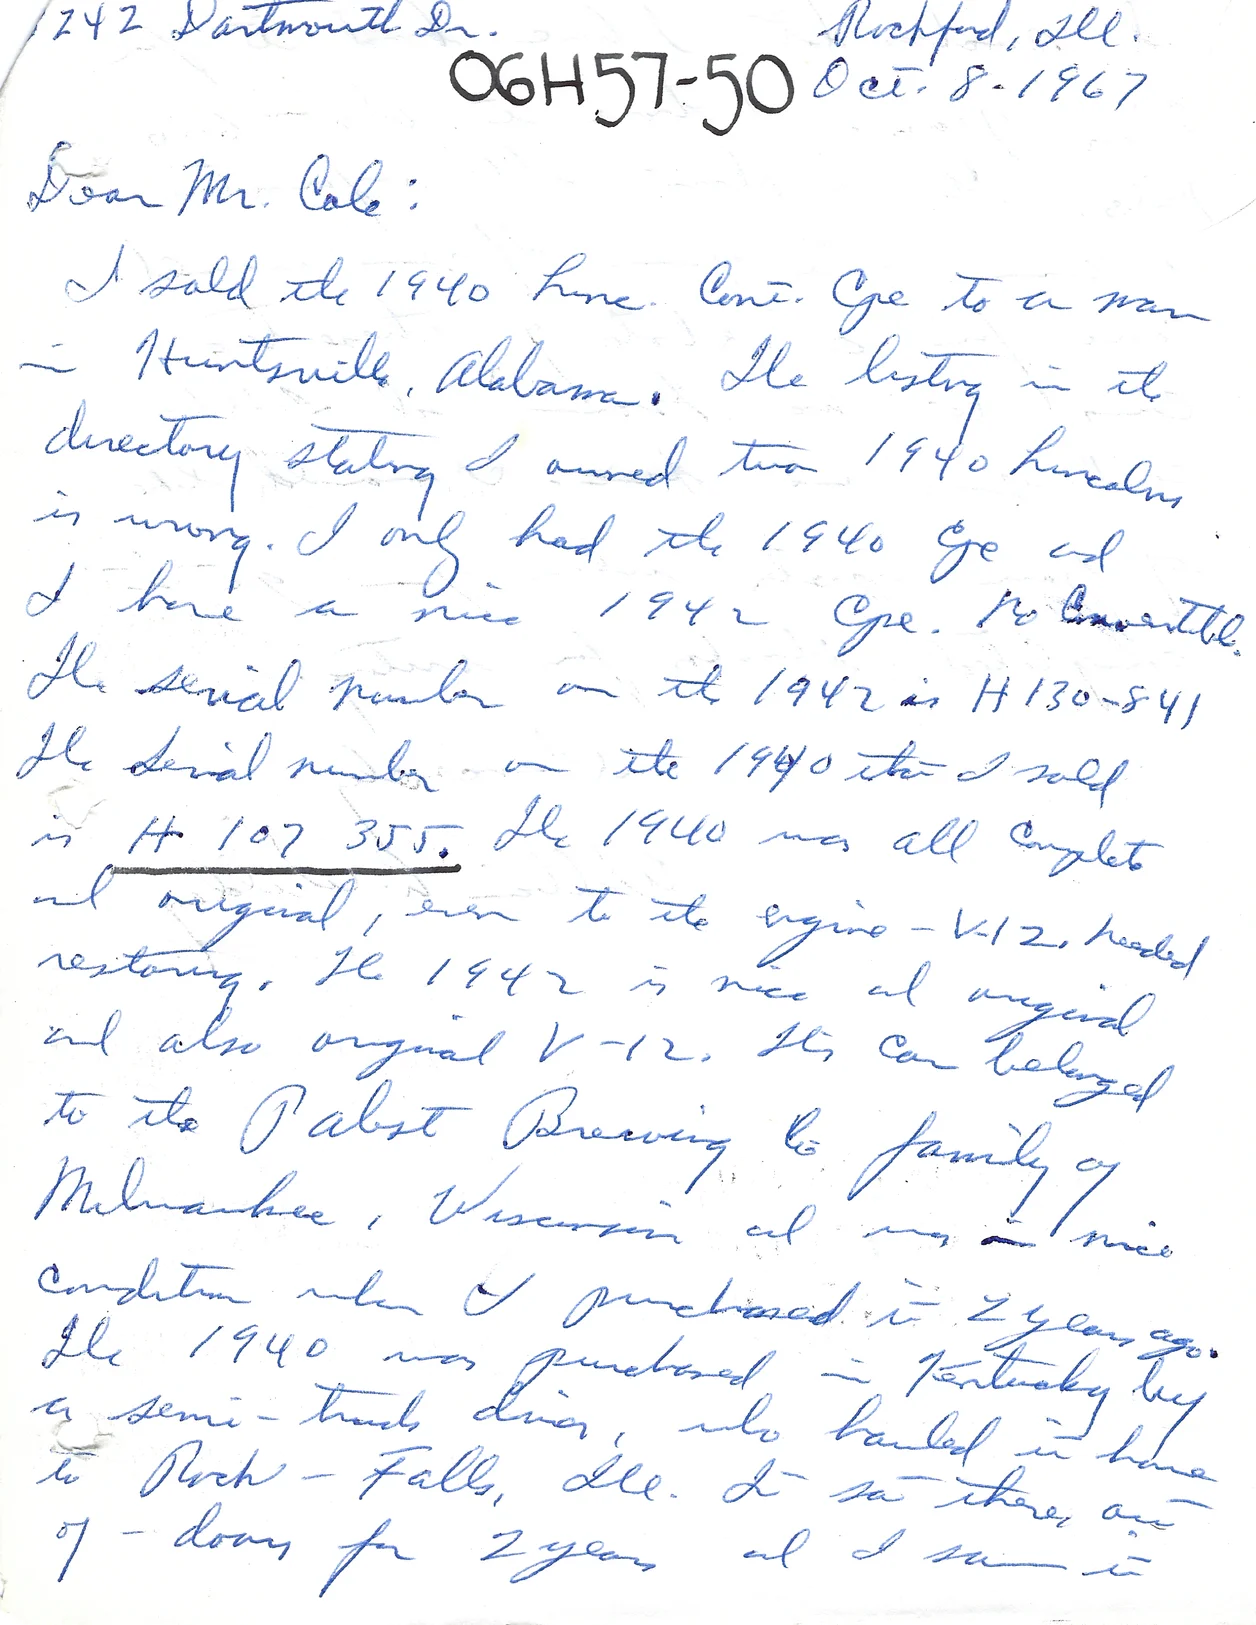 1242 Dartmouth Dr. Rockford, Ill.
06H57-50 Oct. 8-1967
Dear Mr. Cole:
I sold the 1940 Linc. Cont. Cpe to a man
in Huntsville, Alabama. The listing in the
directory stating I owned two 1940 Lincolns
is wrong. I only had the 1940 Cpe and
I have a nice 1942 Cpe. No Convertible.
The serial number on the 1942 is H130-841
The serial number on the 1940 that I sold
is H 107 355. The 1940 was all complete
and original, even to the engine - V-12. Needed
restoring. The 1942 is nice and original
and also original V-12. This car belonged
to the Pabst Brewing Co family of
Milwaukee, Wisconsin and was in nice
condition when I purchased it 2 years ago.
The 1940 was purchased in Kentucky by
a semi-truck driver, who hauled it home
to Rock-Falls, Ill. It sat there, out
of-doors for 2 years and I saw it